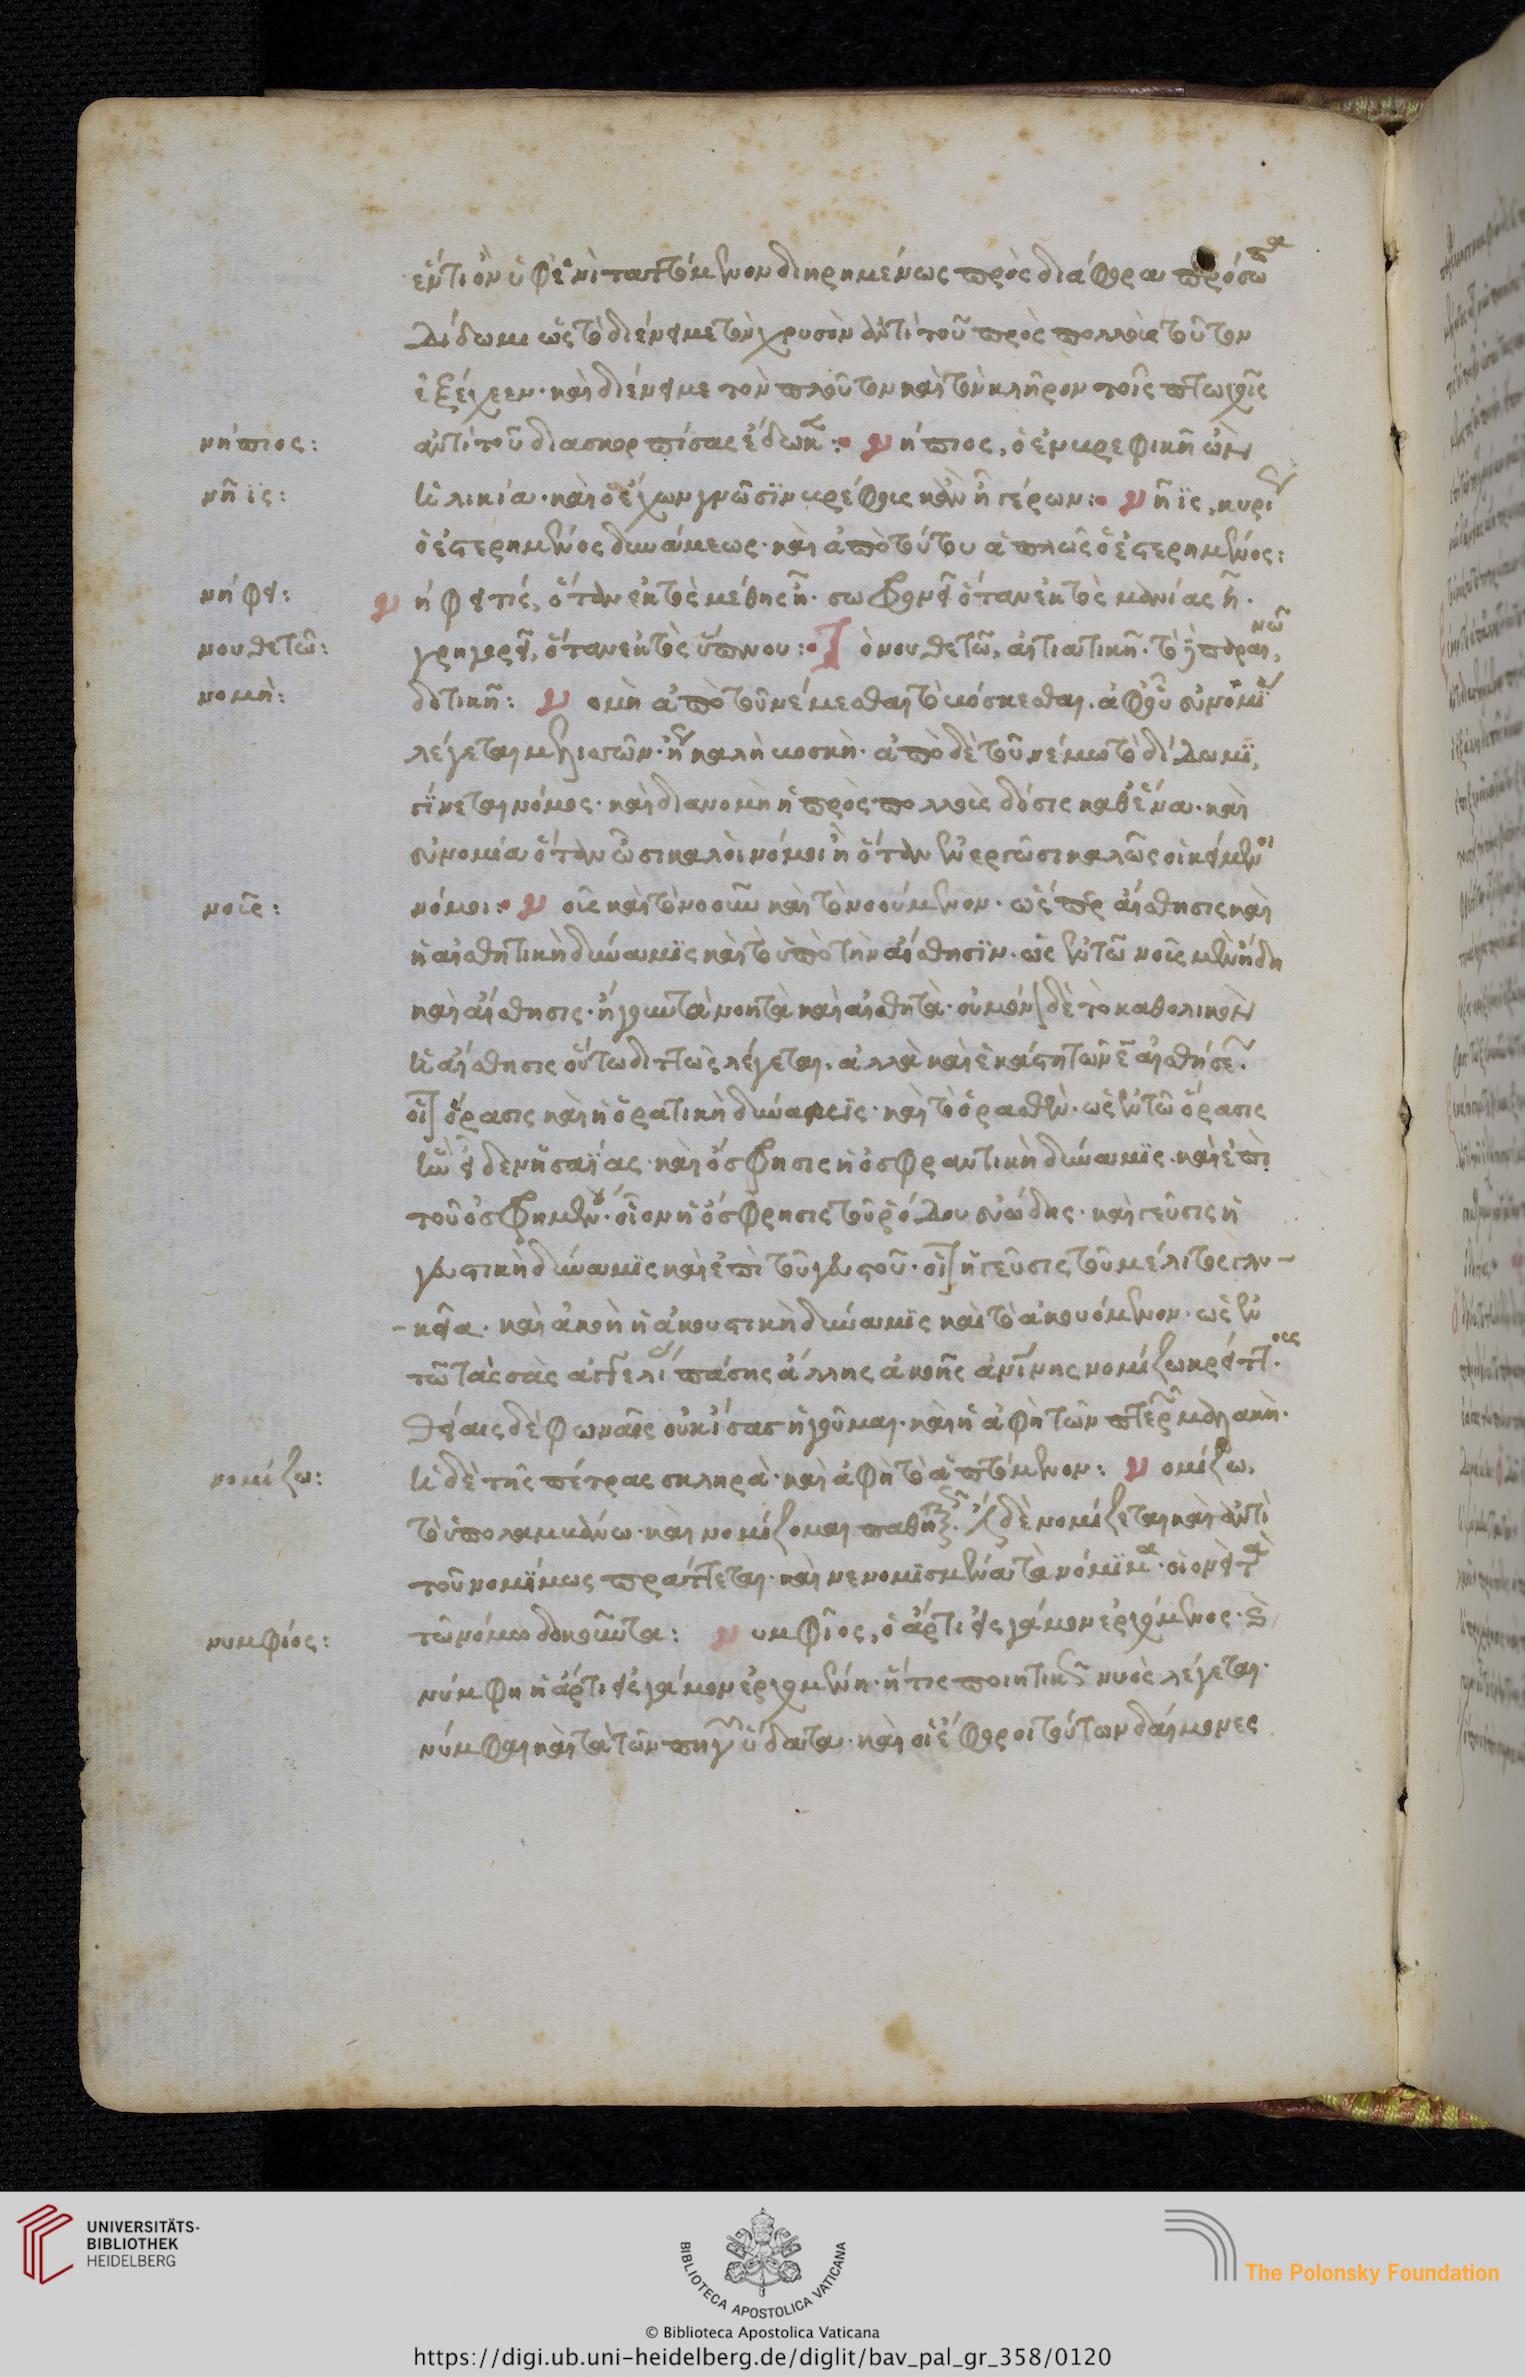 ἕν τι ὂν ὑφ' ἑνὶ ταττόμενον διῃρημένως πρὸς διάφορα πρόσωπα
δίδωμι ὡς τὸ διένειμε τὸν χρυσὸν ἀντὶ τοῦ πρὸς πολλοὺς τοῦτον
ἐξέχεεν· καὶ διένειμε τὸν πλοῦτον καὶ τὸν κλῆρον τοῖς πτωχοῖς
νήπιος: ἀντὶ τοῦ διασκορπίσας ἔδωκε: νήπιος, ὁ ἐν βρεφικῇ ὢν
νῆϊς: ἡλικία· καὶ ὁ ἔχων γνῶσϊν βρέφοις κἂν ᾖ γέρων: νῆϊς, κυρίως
ὁ ἐστερημένος δυνάμεως· καὶ ἀπὸ τούτου ἁπλῶς ὁ ἐστερημένος:
νήφει: νήφει τίς, ὅταν ἐκτὸς μέθης ᾖ· σωφρονεῖ ὅταν ἐκτὸς μανίας ᾖ·
νουθετῶ: γρηγορεῖ, ὅταν ἐκτὸς ὕπνου: τὸ νουθετῶ, αἰτιατικῇ· τὸ παραινῶ,
νομὴ: δοτικῇ: νομὴ ἀπὸ τοῦ νέμεσθαι τὸ βόσκεσθαι. ἀφ' οὗ εὐνομία
λέγεται μελισσῶν· ἡ καλὴ βοσκὴ· ἀπὸ δὲ τοῦ νέμω τὸ δίδωμϊ,
γίνεται νόμος· καὶ διανομὴ ἡ πρὸς πολλοὺς δόσις καθ' ἕνα· καὶ
εὐνομία ὅταν ὦσι καλοὶ νόμοι ἢ ὅταν ἐνεργῶσι καλῶς οἱ κείμενοι
νοῦς: νόμοι: νοῦς καὶ τὸ νοοῦν καὶ τὸ νοούμενον· ὥσπερ αἴσθησις καὶ
ἡ αἰσθητικὴ δύναμϊς καὶ τὸ ὑπὸ τὴν αἴσθησϊν· ὡς ἐν τῷ νοῦς μὲν ἤδη
καὶ αἴσθησις· ἤγουν τὰ νοητὰ καὶ αἰσθητὰ· οὐ μόνον δὲ τὸ καθολικὸν
ἡ αἴσθησις οὕτω διττῶς λέγεται. ἀλλὰ καὶ ἑκάστη τῶν ε αἰσθήσεων·
οἷον ὅρασις καὶ ἡ ὁρατικὴ δύναμϊς· καὶ τὸ ὁραθὲν· ὡς ἐν τῷ ὅρασις
ἣν εἶδεν ἡσαΐας· καὶ ὄσφρησις ἡ ὀσφραντικὴ δύναμϊς· καὶ ἐπὶ
τοῦ ὀσφρημένου· οἷον ἡ ὄσφρησις τοῦ ῥόδου εὐώδης· καὶ γεῦσις ἡ
γευστικὴ δύναμϊς καὶ ἐπὶ τοῦ γευστοῦ· οἷον ἡ γεῦσις τοῦ μέλιτος γλυ-
-κεῖα· καὶ ἀκοὴ ἡ ἀκουστικὴ δύναμϊς καὶ τὸ ἀκουόμενον· ὡς ἐν
τῷ τὰς σὰς ἀγγελίας πάσης ἄλλης ἀκοῆς νομίζω κρείττους·
θείαις δὲ φωναῖς οὐκ ἴσας ἡγοῦμαι· καὶ ἡ ἁφὴ τῶν πτερῶν μαλακὴ·
νομίζω: ἡ δὲ τῆς πέτρας σκληρὰ· καὶ ἁφὴ τὸ ἁπτόμενον: νομίζω.
τὸ ὑπολαμβάνω· καὶ νομίζομαι παθητικῶς· δὲ νομίζεται καὶ ἀντὶ
τοῦ νομϊμως πράττεται· καὶ νενομϊσμένα τὰ νόμϊμα· οἱονεὶ τὰ
νυμφίος: τῷ νόμῳ δοκοῦντα: νυμφίος, ὁ ἄρτι εἰς γάμον ἐρχόμενος· καὶ
νύμφη ἡ ἄρτι εἰς γάμον ἐρχομένη· ἥτις ποιητικῶς νυὸς λέγεται·
νύμφαι καὶ τὰ τῶν πηγῶν ὕδατα· καὶ οἱ ἔφοροι τούτων δαίμονες
UNIVERSITÄTS-
BIBLIOTHEK
HEIDELBERG
BIBLIOTECA APOSTOLICA VATICANA
The Polonsky Foundation
© Biblioteca Apostolica Vaticana
https://digi.ub.uni-heidelberg.de/diglit/bav_pal_gr_358/0120